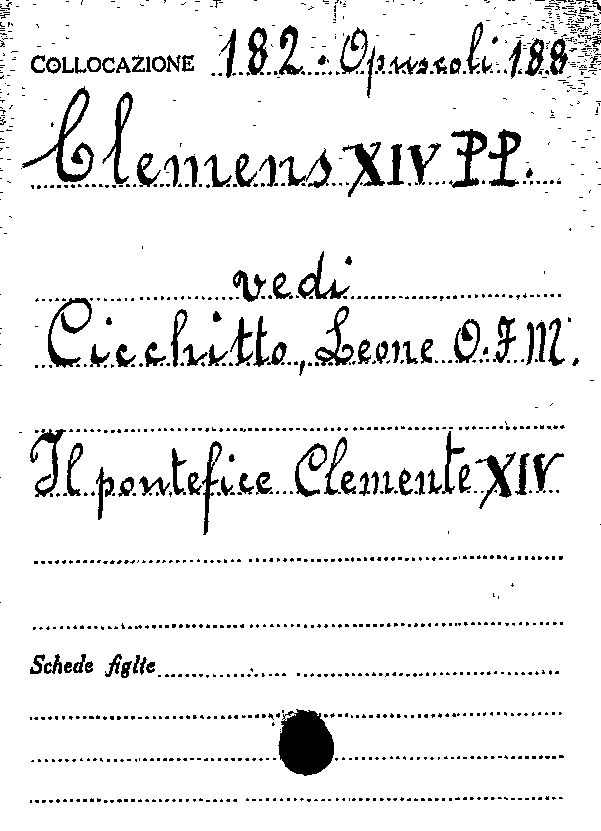 COLLOCAZIONE 182. Opuscoli 188
Clemens XIV PP.
vedi
Cicchitto, Leone O.F.M.
Il pontefice Clemente XIV
Schede figlie